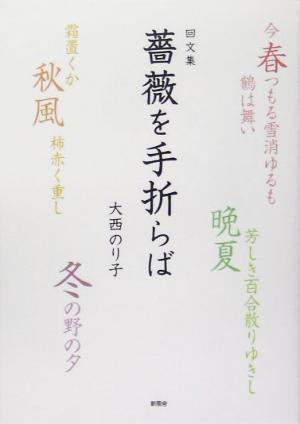 今春つもる雪消ゆるも
鶴は舞い
回文集
薔薇を手折らば
大西のり子
霜置くか
秋風
柿赤く重し
晩夏
芳しき百合散りゆきし
冬の野の夕
新風舎